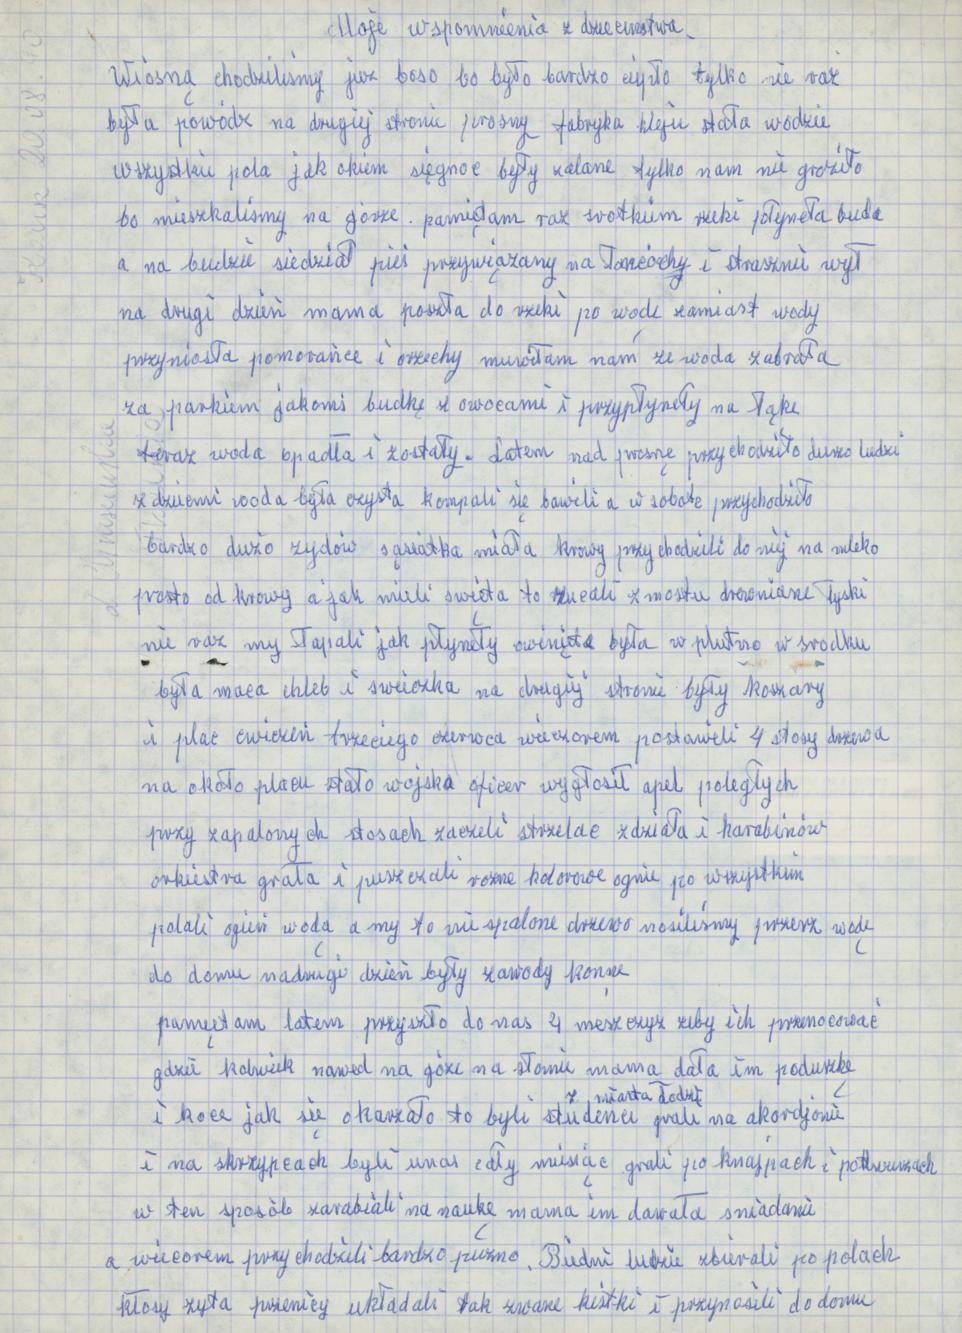 Moje wspomnienia z dzieciństwa.
Wiosną chodziliśmy już boso bo było bardzo ciepło tylko nie raz
była powódz na drugiej stronie prosny fabryka kleju stała wodzie
wszystkie pola jak okiem sięgnoć były zalane tylko nam nie groziło
bo mieszkaliśmy na górze. pamiętam raz srotkiem rzeki płyneła buda
a na budzie siedział pies przywiązany na łańcochy i strasznie wył
na drugi dzień mama poszła do rzeki po wodę zamiast wody
przyniosła pomorańce i orzechy musiałam nam że woda zabrała
za parkiem jakomś budkę z owocami i przypłyneły na łąkę
teraz woda opadła i zostały. Latem nad prosnę przychodziło dużo ludzi
z dziećmi woda była czysta kompali się bawili a w sobotę przychodziło
bardzo dużo zydów sąsiatka miała krowy przychodzili do niej na mleko
prosto od krowy a jak mieli święta to rzucali z mostu drewniane łyski
nie raz my łapali jak płyneły owinięta była w płutno w srodku
była maca chleb i swieczka na drugiej stronie były koszary
i plac ćwiczeń trzeciego czerwca wieczorem postawili 4 stosy drzewa
na około placu stało wojska oficer wygłosił apel poległych
przy zapalonych stosach zaczeli strzelać z działa i karabinów
orkiestra grała i puszczali rozne kolorowe ognie po wszystkim
polali ogień wodą a my to nie spalone drzewo nosiliśmy przez wodę
do domu nadrugi dzień były zawody konne
pamiętam latem przyszło do nas 4 meszczyz zeby ich przenocować
gdzie kolwiek nawed na górze na słomie mama dała im poduszkę
z miarta łodzi
i koce jak się okarzało to byli studenci grali na akordjonie
i na skrzypcach byli unas cały miesiąc grali po knajpach i podwurzach
w ten sposób zarabiali na naukę mama im dawała sniadanie
a wiecorem przychodzili bardzo puzno. Biedni ludzie zbierali po polach
kłosy zyta pszenicy układali tak zwane kistki i przynosili do domu